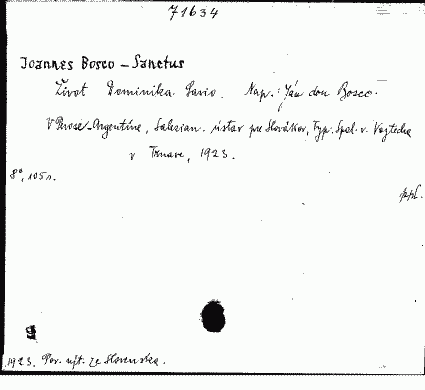 71634
Joannes Bosco – Sanctus
Život Dominika Savio. Nap.: Ján don Bosco.
V Perose-Argentíne, Salezian. ústav pre Slovákov, Typ. Spol. v. Vojtecha
v Trnave, 1923.
8°, 105 s.
ppl.
1923. Pov. výt. ze Slovenska.